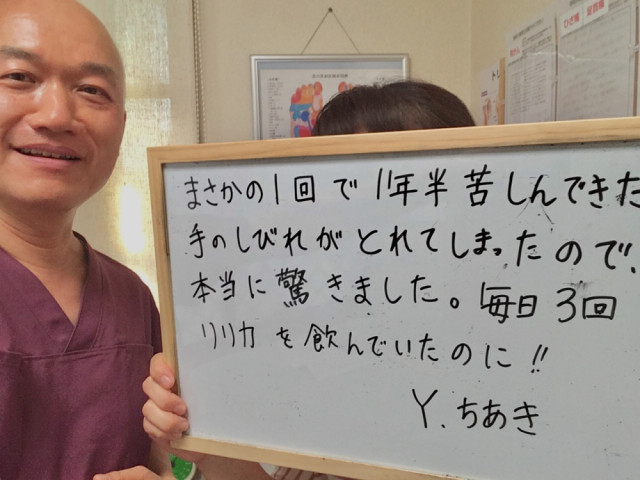 まさかの1回で1年半苦しんできた
手のしびれがとれてしまったので、
本当に驚きました。毎日3回
リリカを飲んでいたのに!!
Y.ちあき
ひざ痛